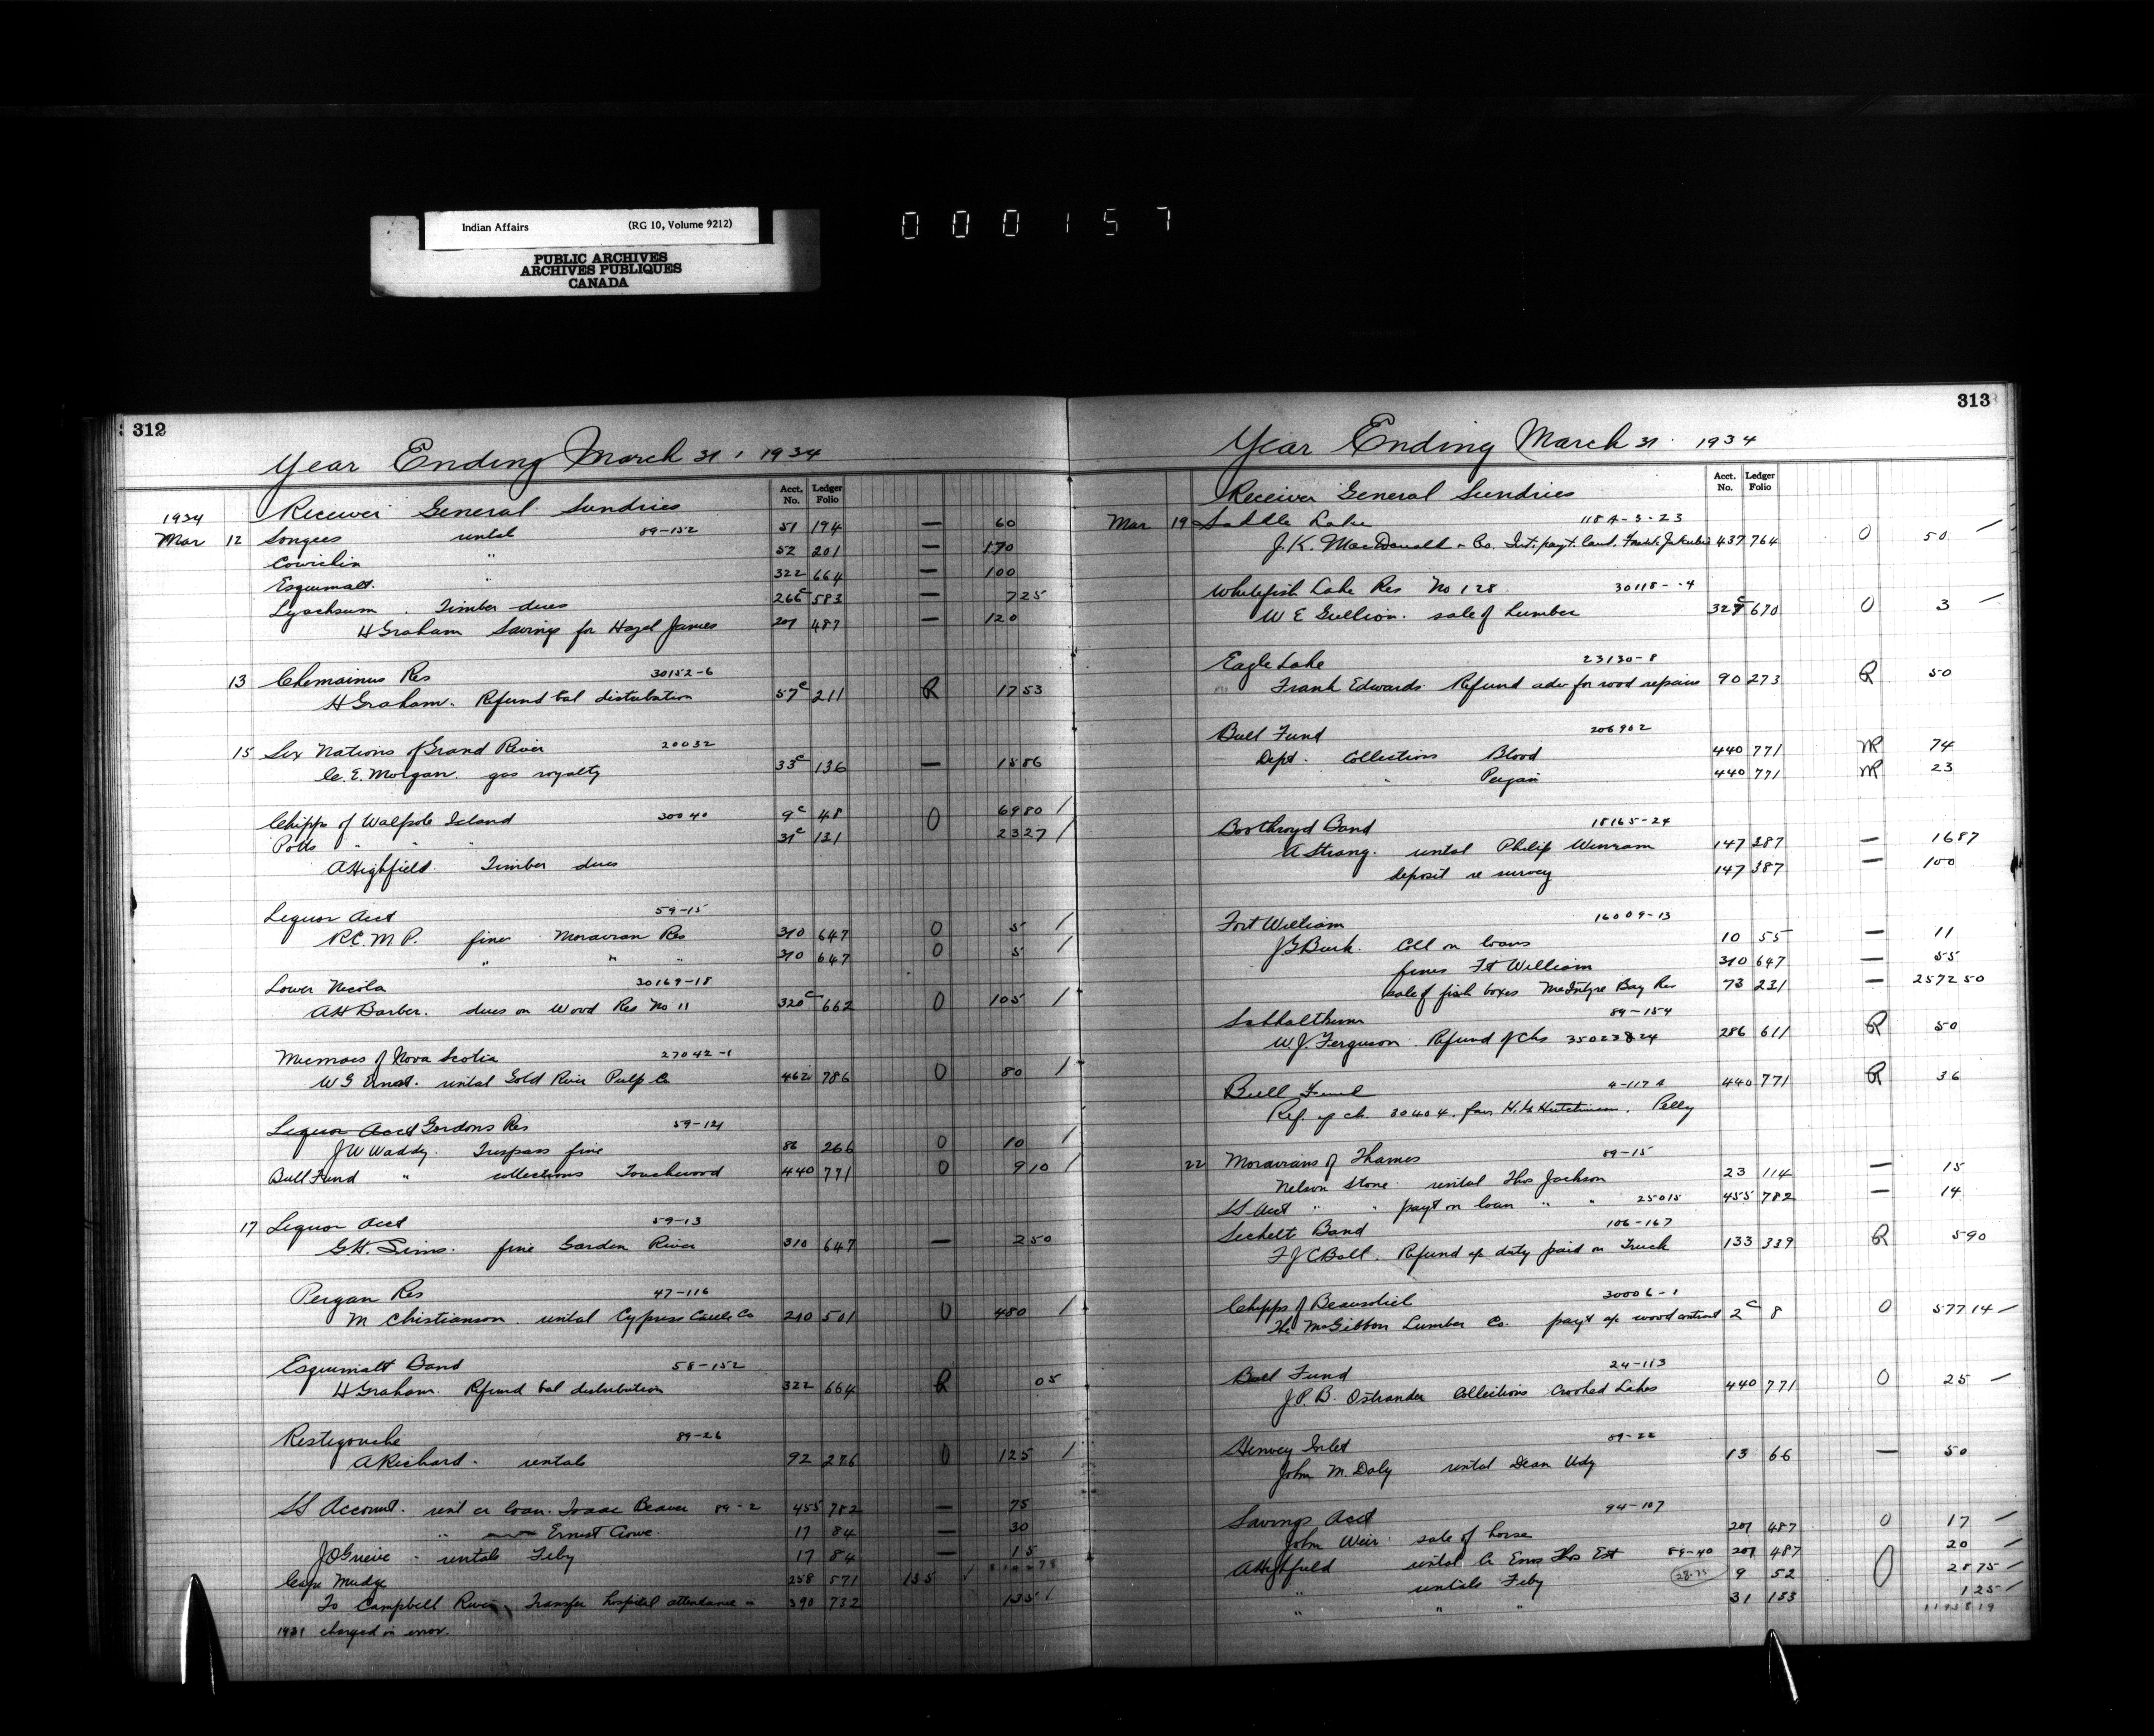 Indian Affairs (RG 10, Volume 9212)
PUBLIC ARCHIVES
ARCHIVES PUBLIQUES
CANADA
000157
312
Year Ending March 31, 1934
Acct. No. Ledger Folio
1934 Receiver General Sundries
Mar 12 Songees rental 89-152 51 194 — 60
Cowichin " 52 201 — 170
Esquimalt " 322 664 — 100
Lyachsum . Timber dues 266c 583 — 725
H Graham Savings for Hazel James 207 487 — 120
13 Chemainus Res 30152-6
H Graham. Refund bal distribution 57c 211 R 1753
15 Six Nations of Grand River 20032
C. E. Morgan. gas royalty 33c 136 — 1586
Chipps of Walpole Island 30040 9c 48 O 6980 /
Potts " " " 31c 131 2327 /
A Highfield. Timber dues
Liquor Acct 59-15
R.C.M.P. fine Moravian Res 310 647 O 5 /
" " " 310 647 O 5 /
Lower Nicola 30169-18
AH Barber. dues on Wood Res No 11 320c 662 O 105 /
Micmacs of Nova Scotia 27042-1
W G Ernst. rental Gold River Pulp Co 462 786 O 80 /
Liquor Acct Gordons Res 59-121
J W Waddy. Trespass fine 86 266 O 10 /
Bull Fund " collections Touchwood 440 771 O 910 /
17 Liquor Acct 59-13
G.H. Sims. fine Garden River 310 647 — 250
Peigan Res 47-116
M Christianson. rental Cypress Cattle Co 210 501 O 480 /
Esquimalt Band 58-152
H Graham. Refund bal distribution 322 664 R 05
Restigouche 89-26
A Richard. rentals 92 276 O 125 /
SS Account. rent on loan. Isaac Beaver 89-2 455 782 — 75
" Ernest Crowe. 17 84 — 30
J O Grieve - rentals Feby 17 84 — 15
Cape Mudge 258 571 135 /
To Campbell River Transfer hospital attendance 390 732 135 /
1931 charged in error.
313
Year Ending March 31 1934
Acct. No. Ledger Folio
Receiver General Sundries
Mar 19 Saddle Lake 118A-3-23
J. K. MacDonald & Co. Int. payt. land 437 764 O 50
Whitefish Lake Res No 128 30118--4
W E Gullion. sale of Lumber 327c 670 O 3
Eagle Lake 23130-8
Frank Edwards. Refund adv for road repairs 90 273 R 50
Bull Fund 206902
Dept. Collections Blood 440 771 M 74
" Peigan 440 771 M 23
Boothroyd Band 18165-24
A Strang. rental Philip Winram 147 387 — 1687
deposit re survey 147 387 — 100
Fort William 16009-13
J G Burk. Coll on loans 10 55 — 11
fines Ft William 310 647 — 55
sale of fish boxes McIntyre Bay Res 73 231 — 257250
Sahhaltkum 89-154
W. J. Ferguson. Refund of Chs 286 611 R 50
Bull Fund 4-117A 440 771 R 36
Ref. of ch. 30404, fav. Pelly
22 Moravians of Thames 89-15
Nelson Stone. rental Thos Jackson 23 114 — 15
SS Acct " " payt on loan " " 25015 455 782 — 14
Sechelt Band 106-167
F J C Ball. Refund of duty paid on Truck 133 339 R 590
Chipps of Beausoleil 30006-1
The McGibbon Lumber Co. payt of wood contract 2c 8 O 57714
Bull Fund 24-113
J.P.B. Ostrander Collections Crooked Lakes 440 771 O 25
Henvey Inlet 89-22
John M. Daly rental Dean Udy 13 66 — 50
Savings Acct 94-107
John Weir. sale of horse 207 487 O 17
A Highfield rental Thos Est 89-40 207 487 20
" rentals Feby 28.75 9 52 O 2875
" " " 31 133 125
1193819